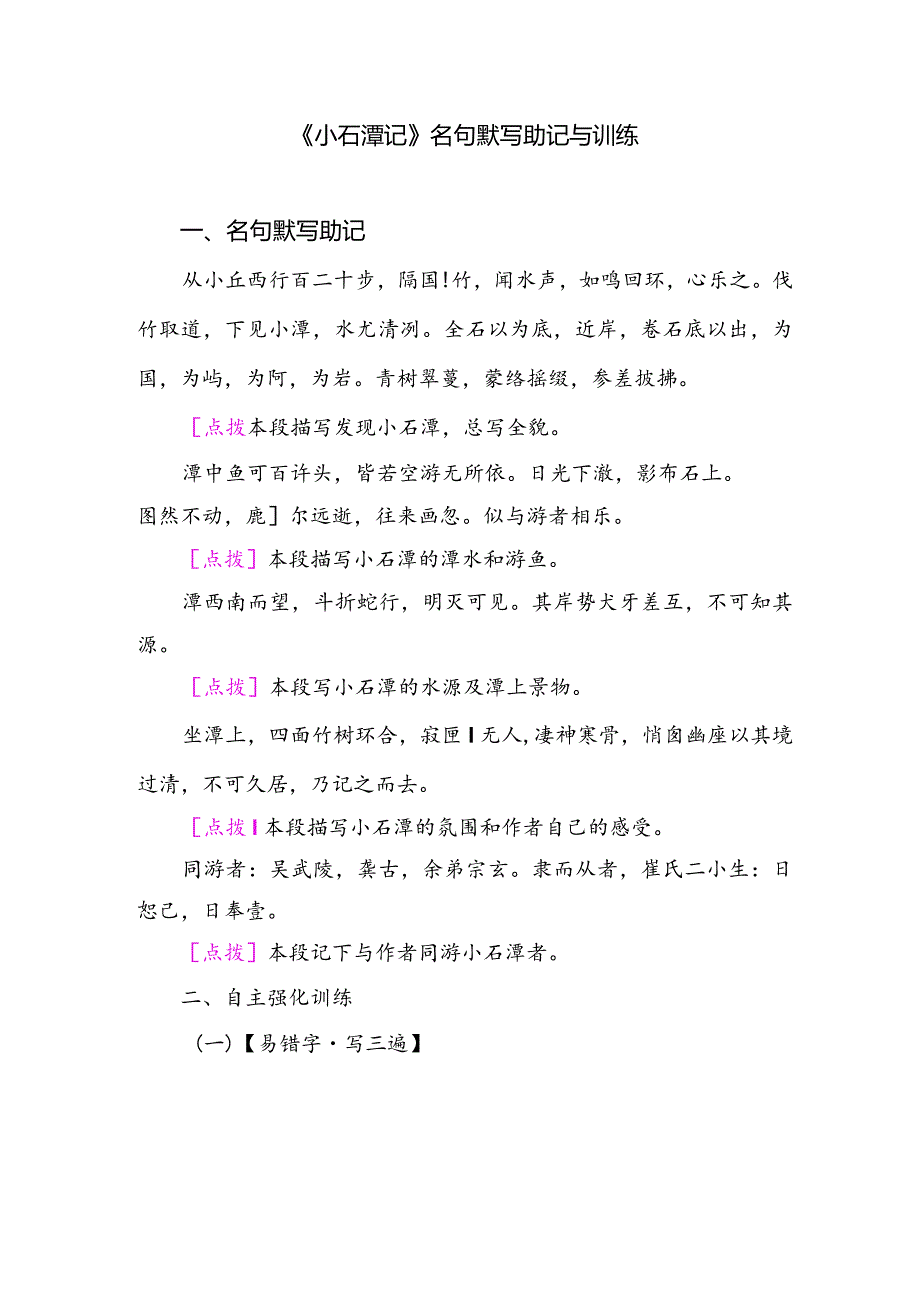 《小石潭记》名句默写助记与训练
一、名句默写助记
从小丘西行百二十步，隔国!竹，闻水声，如鸣回环，心乐之。伐
竹取道，下见小潭，水尤清冽。全石以为底，近岸，卷石底以出，为
国，为屿，为阿，为岩。青树翠蔓，蒙络摇缀，参差披拂。
［点拨本段描写发现小石潭，总写全貌。
潭中鱼可百许头，皆若空游无所依。日光下澈，影布石上。
图然不动，鹿］尔远逝，往来画忽。似与游者相乐。
［点拨］本段描写小石潭的潭水和游鱼。
潭西南而望，斗折蛇行，明灭可见。其岸势犬牙差互，不可知其
源。
［点拨］本段写小石潭的水源及潭上景物。
坐潭上，四面竹树环合，寂匣I无人,凄神寒骨，悄囱幽座以其境
过清，不可久居，乃记之而去。
［点拨I本段描写小石潭的氛围和作者自己的感受。
同游者：吴武陵，龚古，余弟宗玄。隶而从者，崔氏二小生：日
恕己，日奉壹。
［点拨］本段记下与作者同游小石潭者。
二、自主强化训练
(一)【易错字·写三遍】